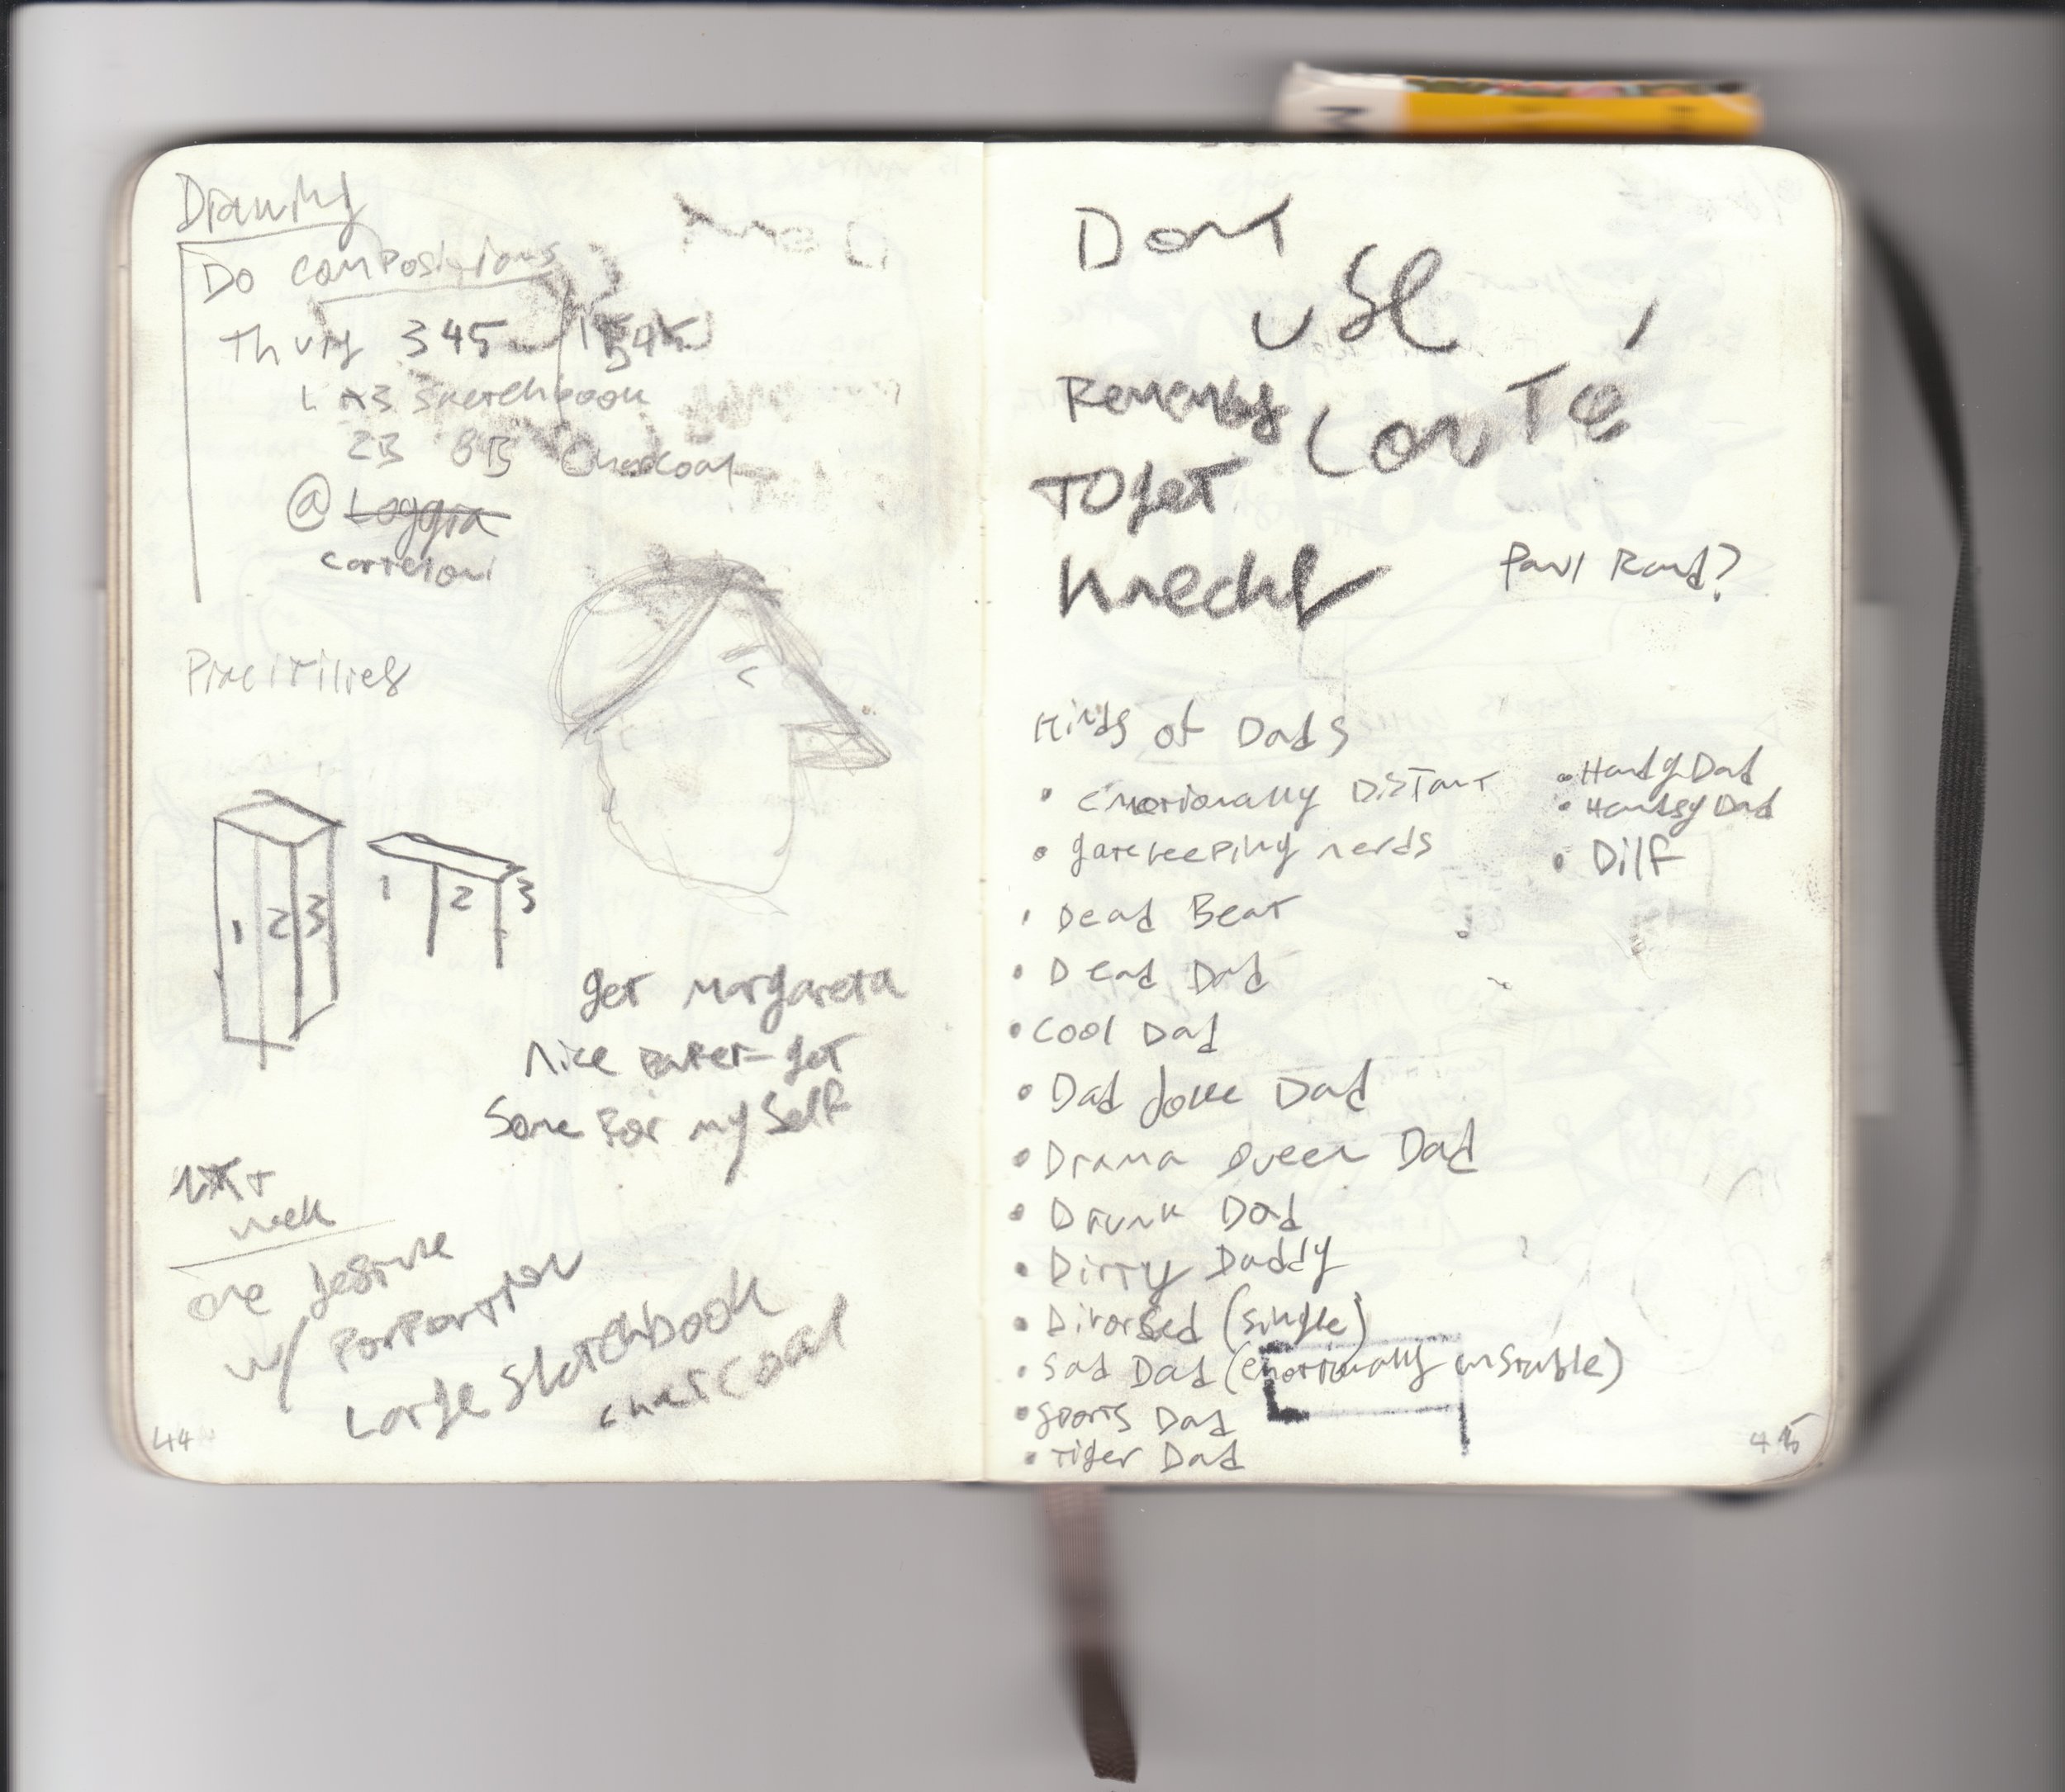 Drawing
Do compositions
Thurs 345
2B 6B Charcoal
@ Loggia
get Margareta
nice Paper - get
Some For my Self
week
one
w/ PorPortion
Large Sketchbook
charcoal
44
Dont
use
Conté
Remember
To get
Knecht
Paul Rand?
Kinds of Dads
• emotionally Distant
• gatekeeping nerds
• Dead Beat
• Dead Dad
• Cool Dad
• Dad Joke Dad
• Drama Queen Dad
• Drunk Dad
• Dirty Daddy
• Divorsed (single)
• Sad Dad (emotionally unstable)
• Sports Dad
• Tiger Dad
• Handy Dad
• Handsy Dad
• Dilf
45